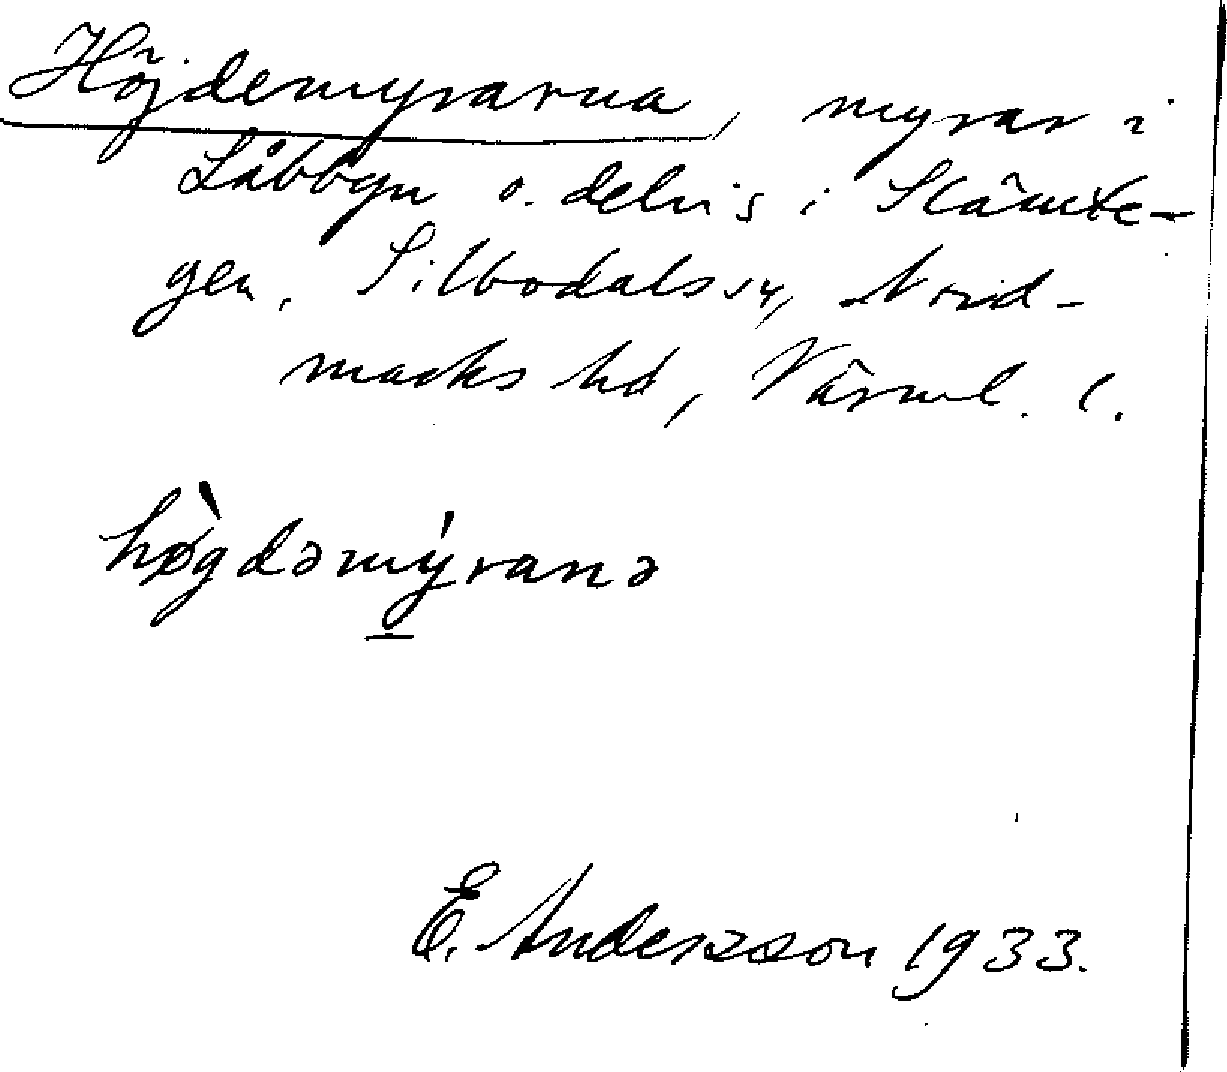 Höjdemyrarna, myrar i
Låbbyn o. delvis i Slämte-
gen, Silbodals sn, Nord-
marks hd, Värml. l.
hø̀gdəmýranə
E. Andersson 1933.